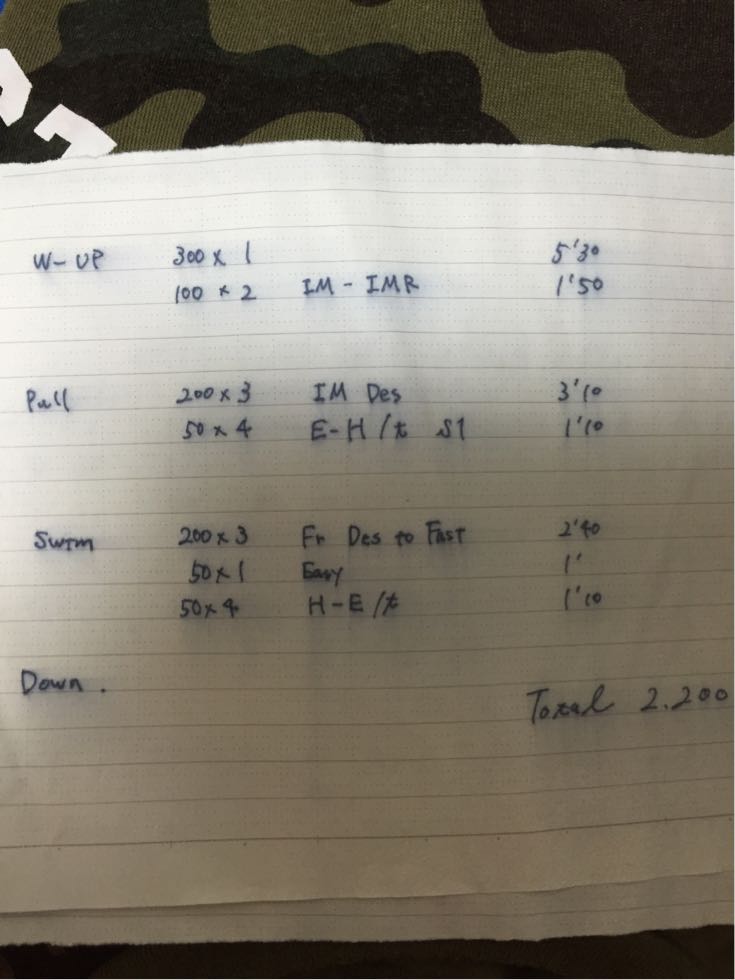 W-UP 300 × 1 5'30
100 × 2 IM - IMR 1'50
Pull 200 × 3 IM Des 3'10
50 × 4 E-H/t S1 1'10
Swim 200 × 3 Fr Des to Fast 2'40
50 × 1 Easy 1'
50 × 4 H-E/t 1'10
Down.
Total 2.200